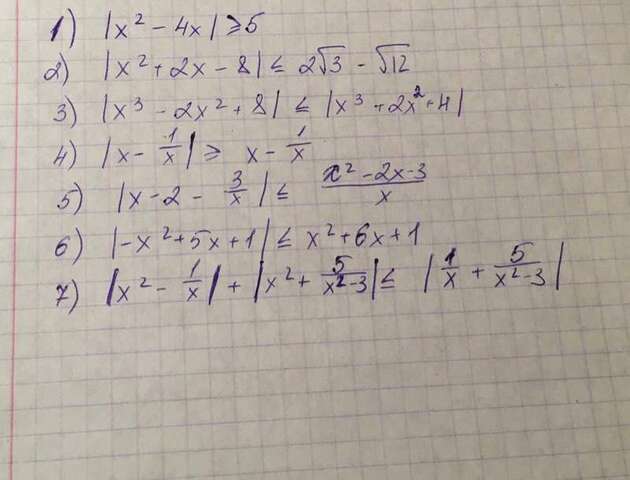 1) |x² - 4x| ⩾ 5
2) |x² + 2x - 8| ≤ 2√3 - √12
3) |x³ - 2x² + 8| ≤ |x³ + 2x² + 4|
4) |x - 1/x| ⩾ x - 1/x
5) |x - 2 - 3/x| ≤ (x² - 2x - 3)/x
6) |-x² + 5x + 1| ≤ x² + 6x + 1
7) |x² - 1/x| + |x² + 5/(x² - 3)| ≤ |1/x + 5/(x² - 3)|